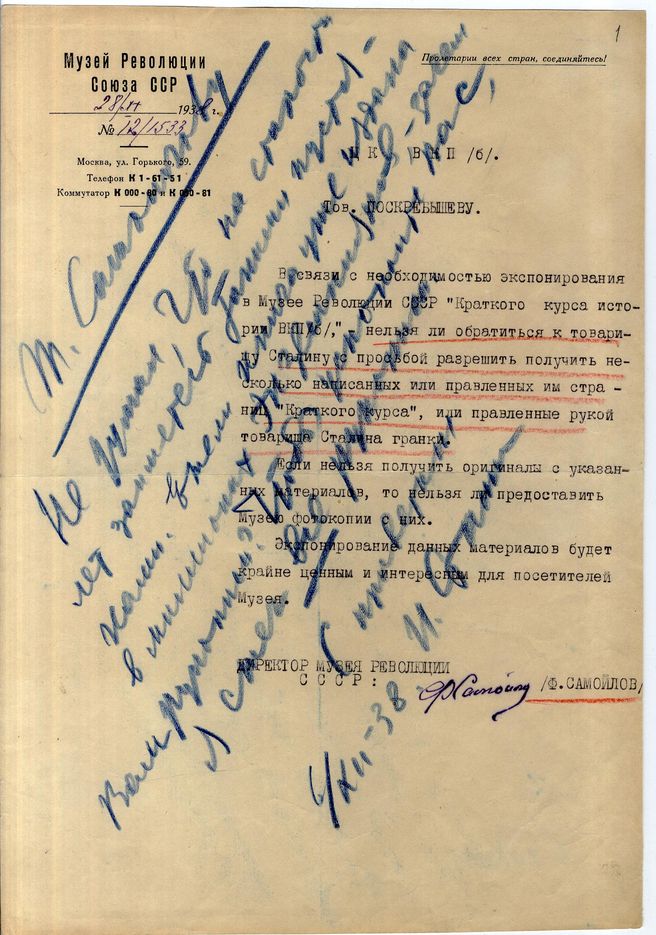 1
Музей Революции
Союза ССР
193 г.
№ 12/1533
Москва, ул. Горького, 59.
Телефон К 1-61-51
Коммутатор К 000-60 и К 0 0-81
Пролетарии всех стран, соединяйтесь!
ЦК ВКП /б/.
Тов. ПОСКРЕБЫШЕВУ.
В связи с необходимостью экспонирования
в Музее Революции СССР "Краткого курса исто-
рии ВКП/б/," - нельзя ли обратиться к товари-
щу Сталину с просьбой разрешить получить не-
сколько написанных или правленных им стра -
ниц "Краткого курса", или правленные рукой
товарища Сталина гранки.
Если нельзя получить оригиналы с указан-
ных материалов, то нельзя ли предоставить
Музею фотокопии с них.
Экспонирование данных материалов будет
крайне ценным и интересным для посетителей
Музея.
ДИРЕКТОР МУЗЕЯ РЕВОЛЮЦИИ
СССР:
/Ф.САМОЙЛОВ/
Т. Самойлову
Не думал я, что на старости
лет займетесь такими пустя-
ками. Если книга уже издана
в миллионах экземпляров – зачем
Вам рукописи? Чтобы успокоить Вас,
я сжег все рукописи.
И. Сталин